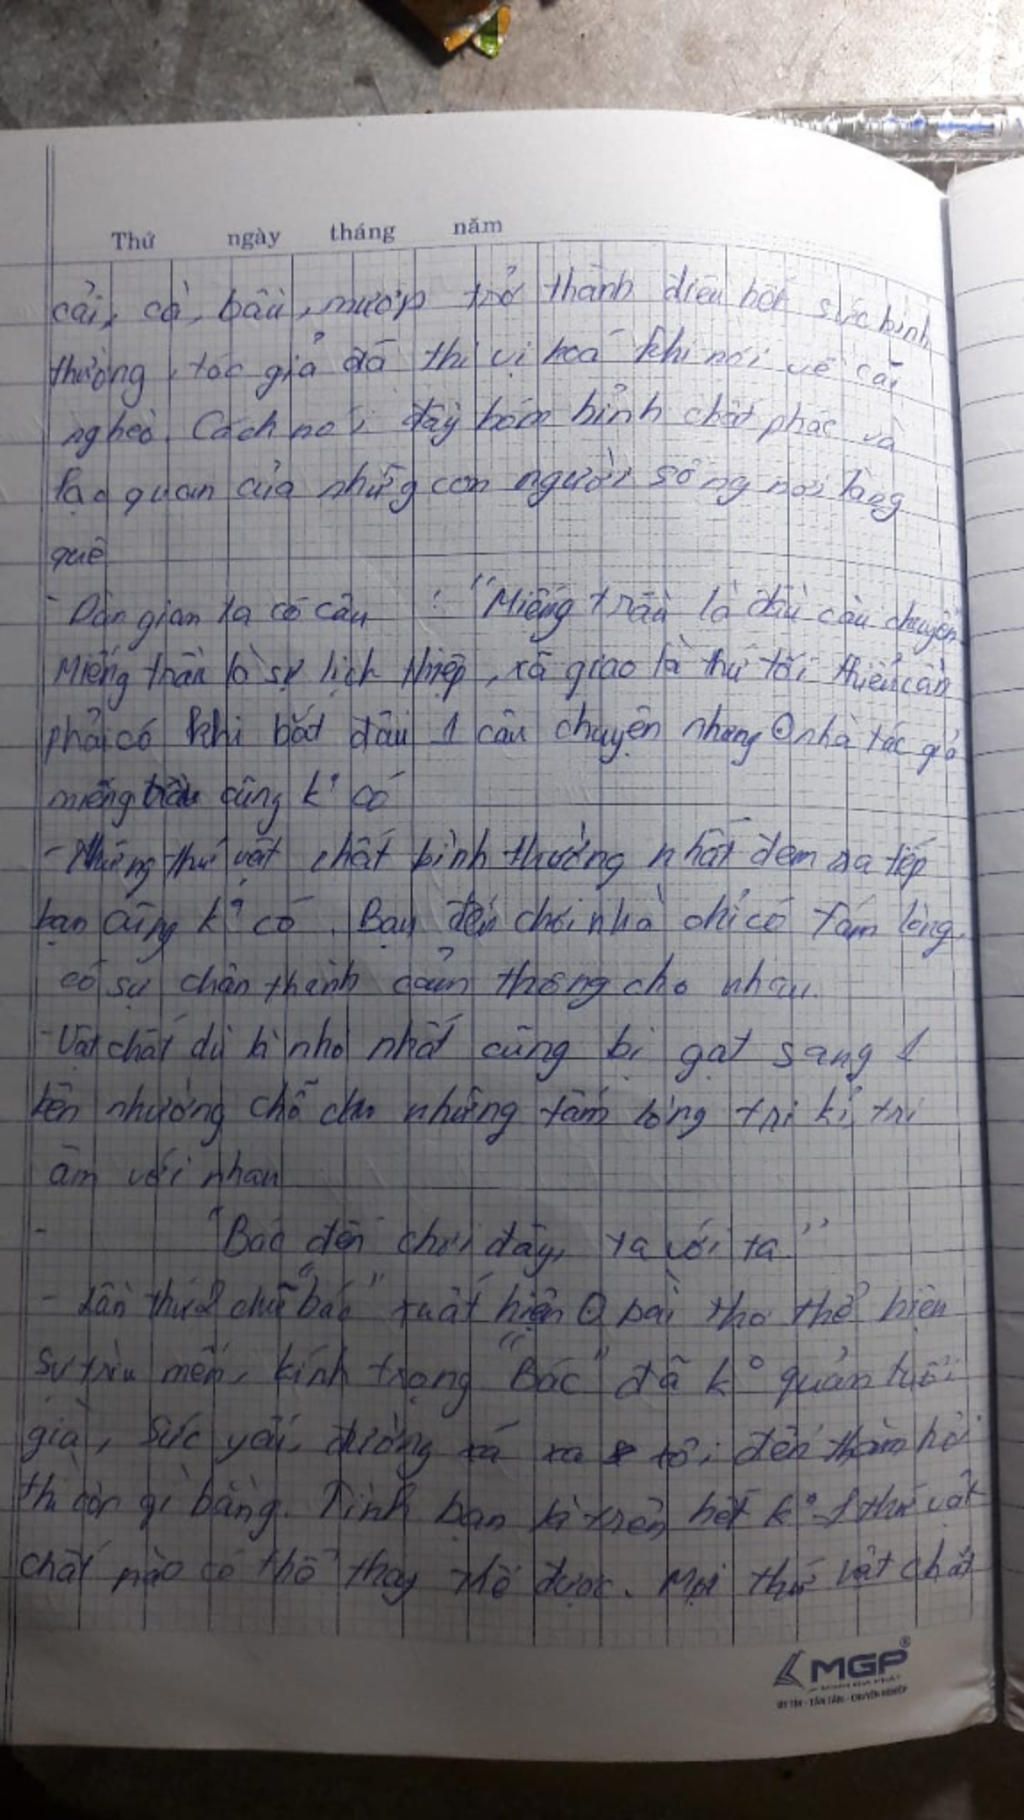 Thứ ngày tháng năm
cải, cà, bầu, mướp trở thành điều hết sức bình
thường, tác giả đã thi vị hoá khi nói về cái
nghèo. Cách nói đầy hóm hỉnh chất phác và
lạc quan của những con người sống nơi làng
quê
- Dân gian ta có câu : "Miếng trầu là đầu câu chuyện
Miếng trầu là sự lịch thiệp, xã giao là thứ tối thiểu cần
phải có khi bắt đầu 1 câu chuyện nhưng nhà tác giả
miếng trầu cũng k° có
- Những thứ vật chất bình thường nhất đem ra tiếp
bạn cũng k° có. Bạn đến chơi nhà chỉ có tấm lòng,
có sự chân thành cảm thông cho nhau.
- Vật chất dù là nhỏ nhất cũng bị gạt sang 1
bên nhường chỗ cho những tấm lòng tri kỉ, tri
âm với nhau
- "Bác đến chơi đây, ta với ta."
- Lần thứ 2 chữ "bác" xuất hiện bài thơ thể hiện
sự trìu mến, kính trọng "Bác" đã k° quản tuổi
già, sức yếu, đường xá xa tôi đến thăm hỏi
thì còn gì bằng. Tình bạn là trên hết k° 1 thứ vật
chất nào có thể thay thế được. Mọi thứ vật chất
MGP
UY TÍN - TẬN TÂM - CHUYÊN NGHIỆP